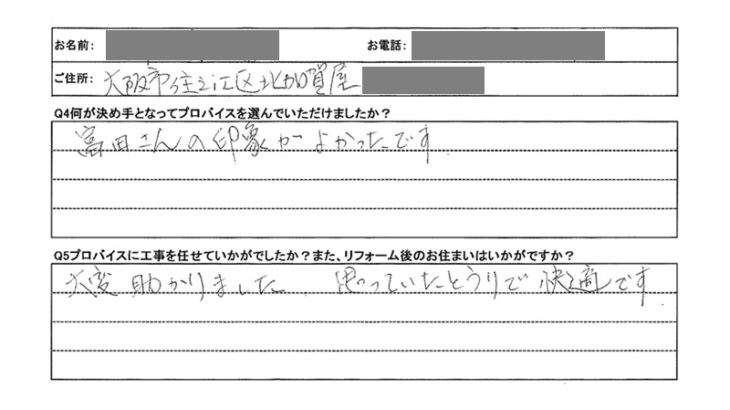 お名前： お電話：
ご住所： 大阪市住之江区北加賀屋
Q4何が決め手となってプロバイスを選んでいただけましたか？
富田さんの印象がよかったです
Q5プロバイスに工事を任せていかがでしたか？また、リフォーム後のお住まいはいかがですか？
大変助かりました 思っていたとうりで快適です